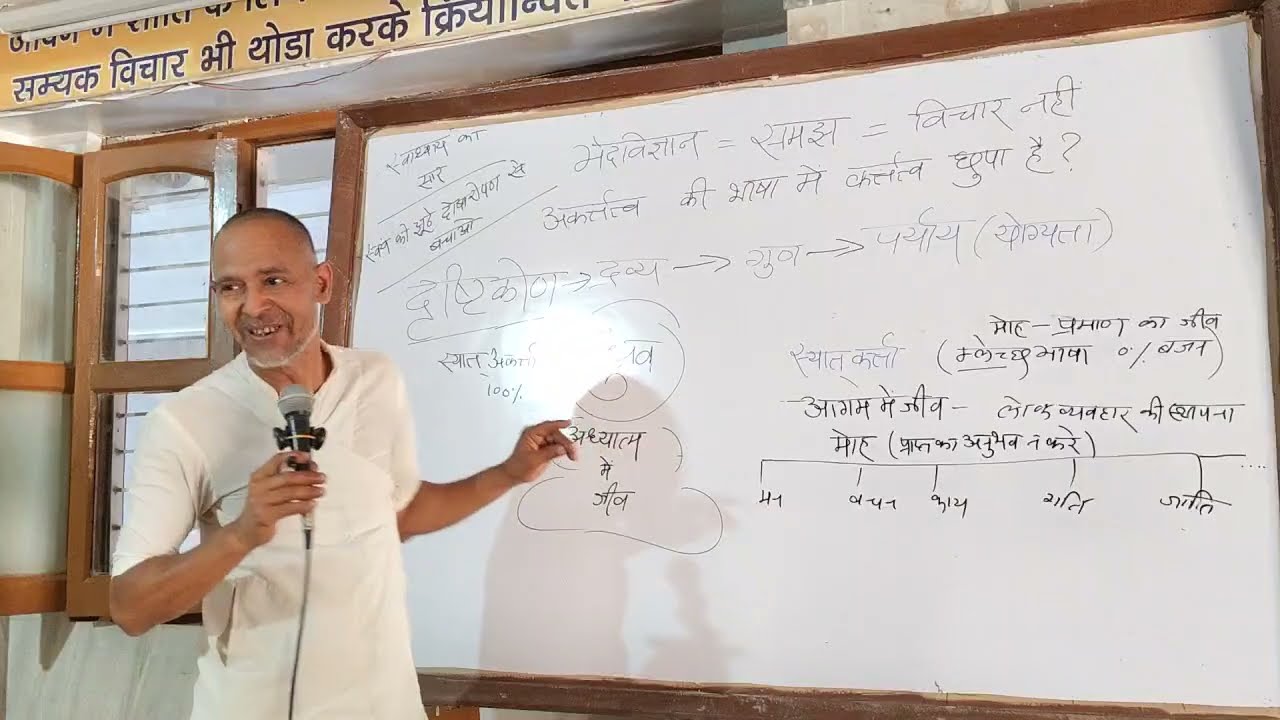 जीवन में शांति के लि
सम्यक विचार भी थोडा करके क्रियान्वित
स्वाध्याय का
सार
स्वयं को झूठे दोषारोपण से
बचाओ
भेदविज्ञान = समझ = विचार नहीं
अकर्त्तत्व की भाषा में कर्त्तत्व छुपा है?
दृष्टिकोण → द्रव्य → गुण → पर्याय (योग्यता)
स्यात् अकर्ता
100%
अध्यात्म
में
जीव
मोह - प्रमाण का जीव
स्यात् कर्ता (म्लेच्छ भाषा 0% वजन)
आगम में जीव - लोक व्यवहार की स्थापना
मोह (प्राप्त का अनुभव न करे)
मन वचन काय गति जाति ....